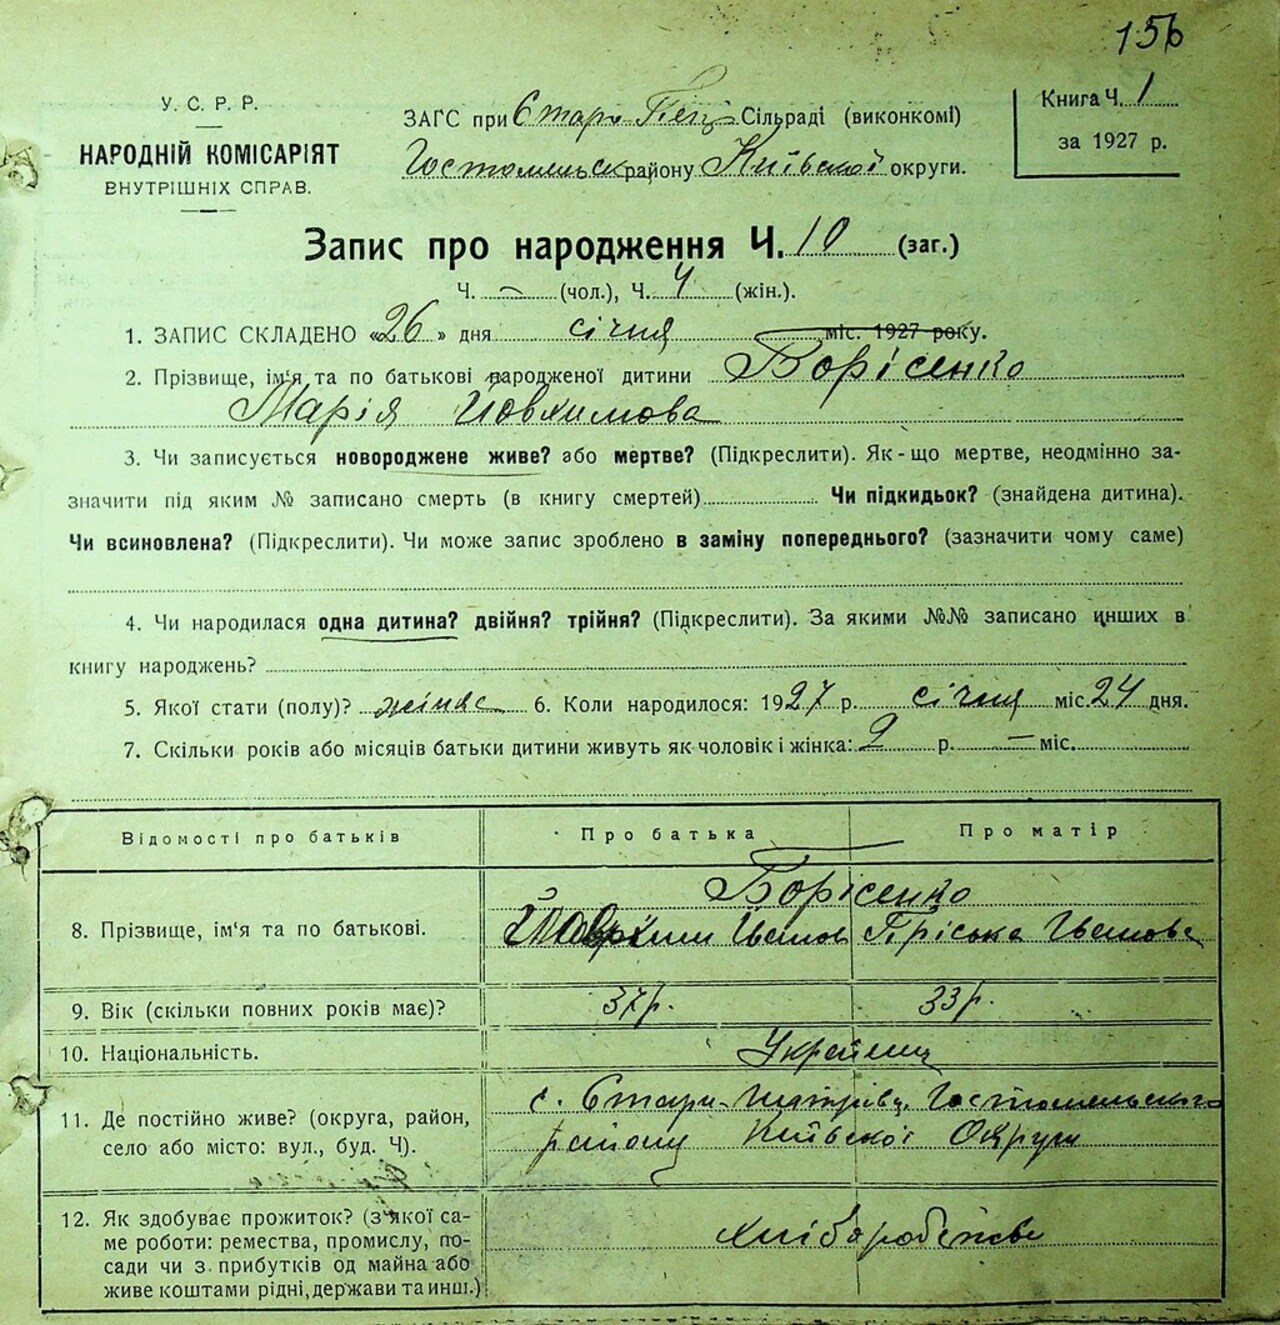 156
У. С. Р. Р.
НАРОДНІЙ КОМІСАРІЯТ
ВНУТРІШНІХ СПРАВ.
ЗАГС при Старо-Петр. Сільраді (виконкомі)
Гостомельск. району Київской округи.
Книга Ч. 1
за 1927 р.
Запис про народження Ч. 10 (заг.)
Ч. – (чол.), Ч. 4 (жін.).
1. ЗАПИС СКЛАДЕНО «26» дня січня міс. 1927 року.
2. Прізвище, ім'я та по батькові народженої дитини Борісенко
Марія Йовхимова
3. Чи записується новороджене живе? або мертве? (Підкреслити). Як-що мертве, неодмінно за-
значити під яким № записано смерть (в книгу смертей) Чи підкидьок? (знайдена дитина).
Чи всиновлена? (Підкреслити). Чи може запис зроблено в заміну попереднього? (зазначити чому саме)
4. Чи народилася одна дитина? двійня? трійня? (Підкреслити). За якими №№ записано инших в
книгу народжень?
5. Якої стати (полу)? жіноє 6. Коли народилося: 1927 р. січня міс. 24 дня.
7. Скільки років або місяців батьки дитини живуть як чоловік і жінка: 9 р. – міс.
Відомості про батьків Про батька Про матір
Борісенко
8. Прізвище, ім'я та по батькові. Йовхим Иванов Пріська Иванова
9. Вік (скільки повних років має)? 37 р. 33 р.
10. Національність. Украйнці
11. Де постійно живе? (округа, район, село або місто: вул., буд. Ч).
с. Стари-Петрівці, Гостомельского
району Київскоі Округи
12. Як здобуває прожиток? (з якої са-
ме роботи: ремества, промислу, по-
сади чи з прибутків од майна або
живе коштами рідні, держави та инш.)
хліборобством